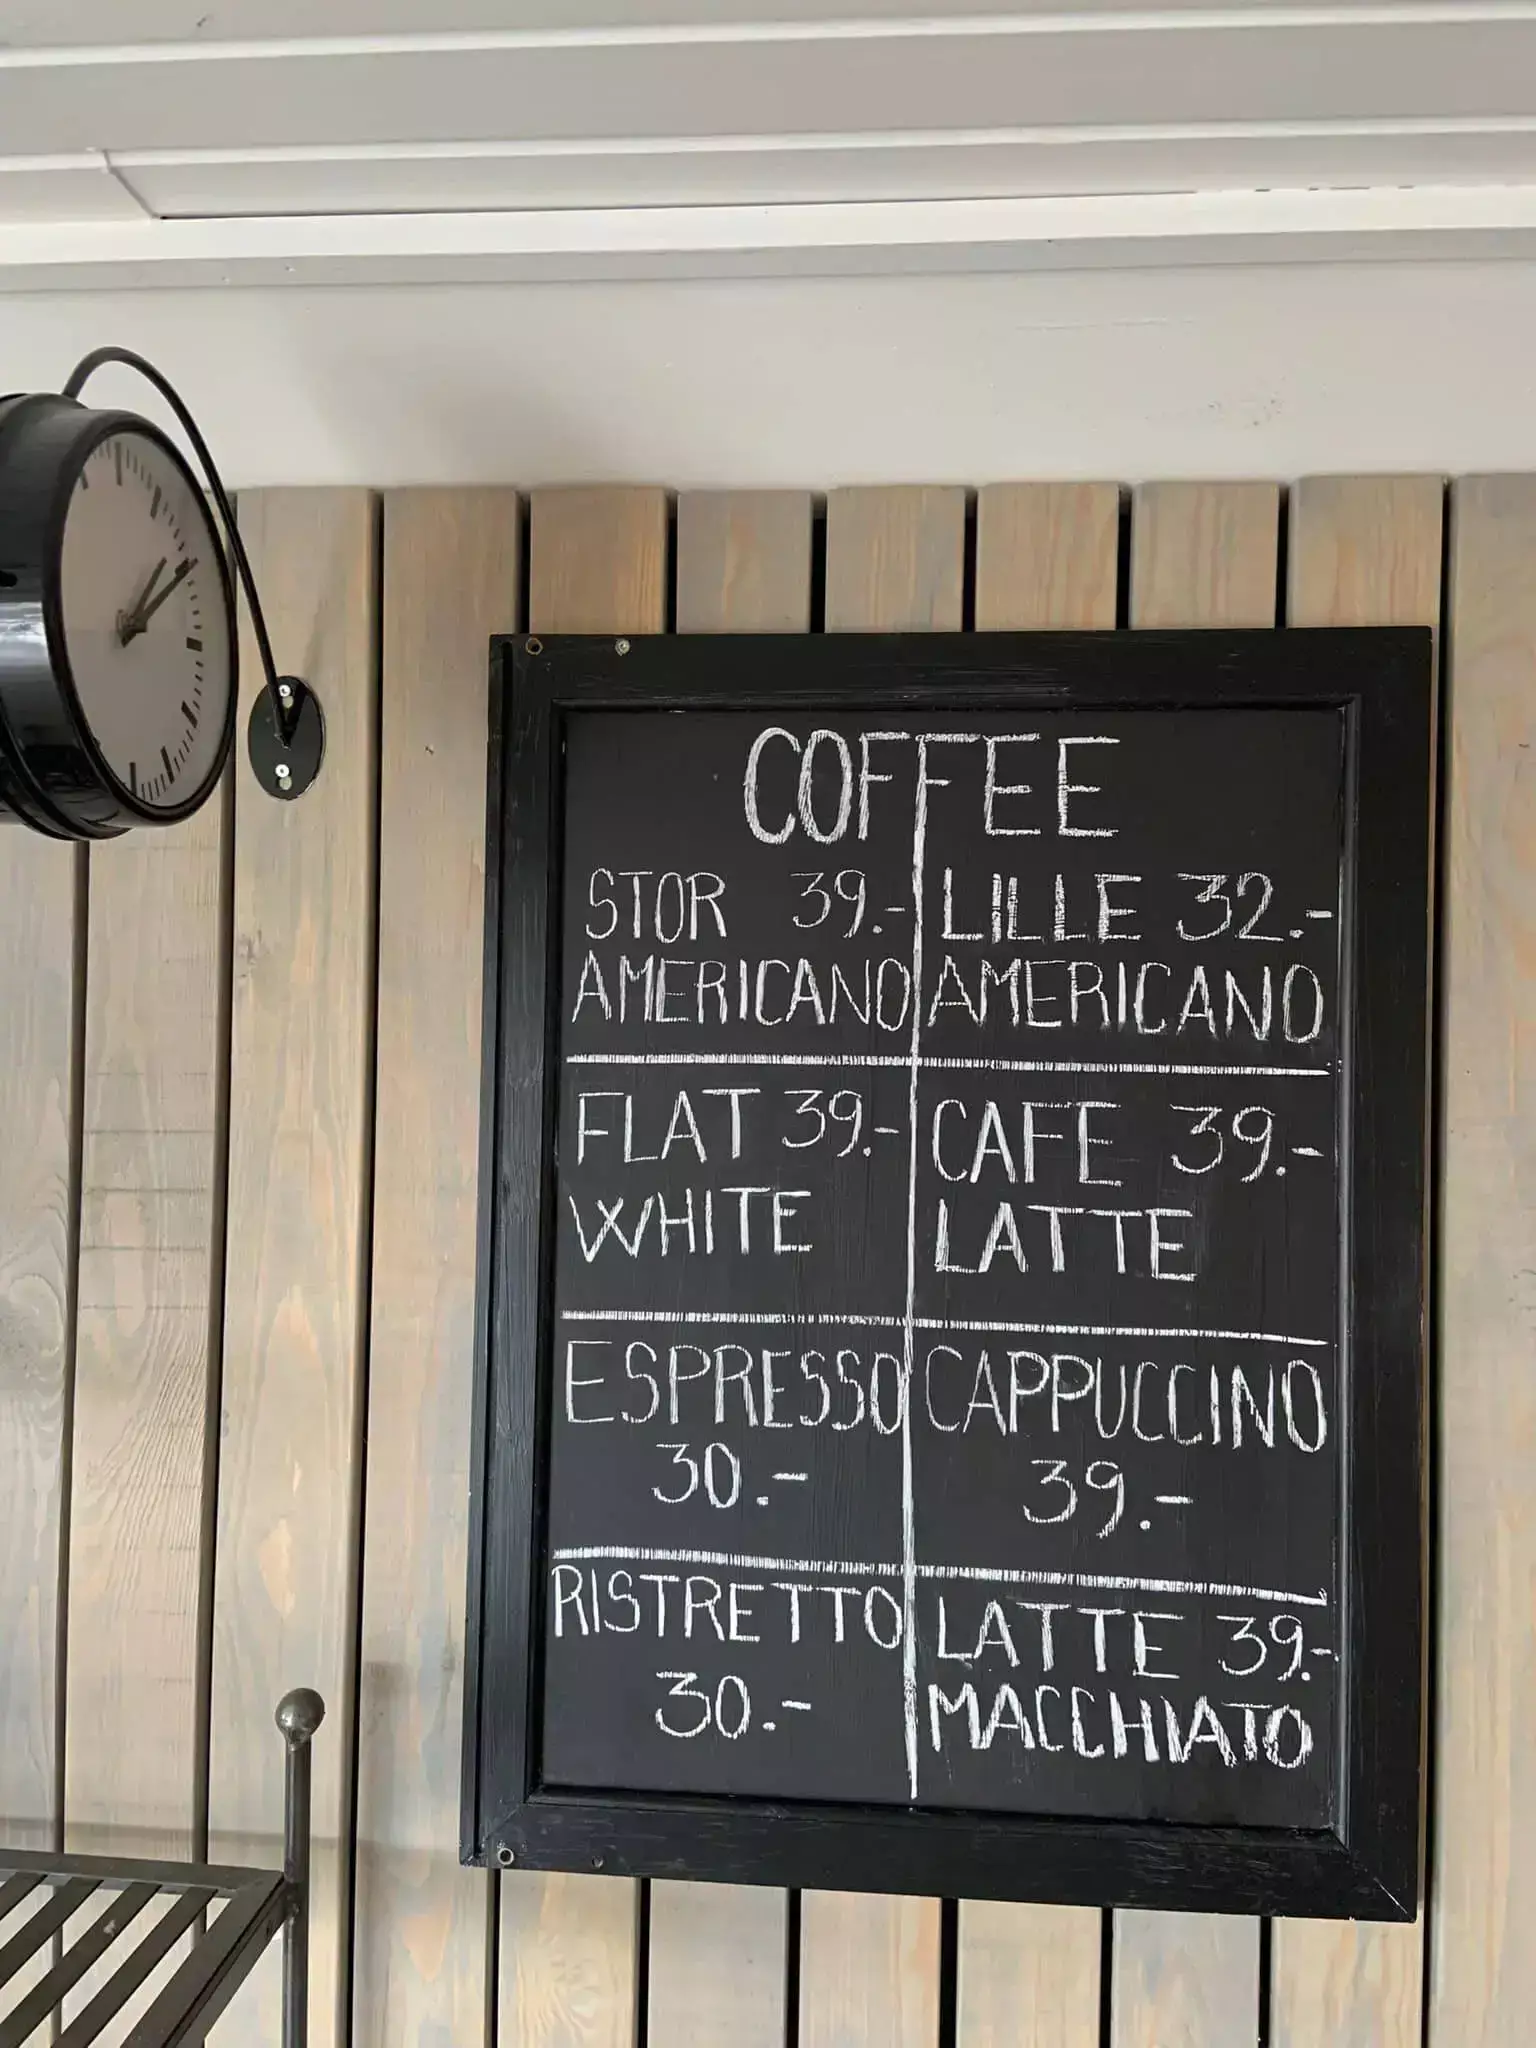 COFFEE
STOR 39.-
AMERICANO
LILLE 32.-
AMERICANO
FLAT 39.-
WHITE
CAFE 39.-
LATTE
ESPRESSO
30.-
CAPPUCCINO
39.-
RISTRETTO
30.-
LATTE 39.-
MACCHIATO